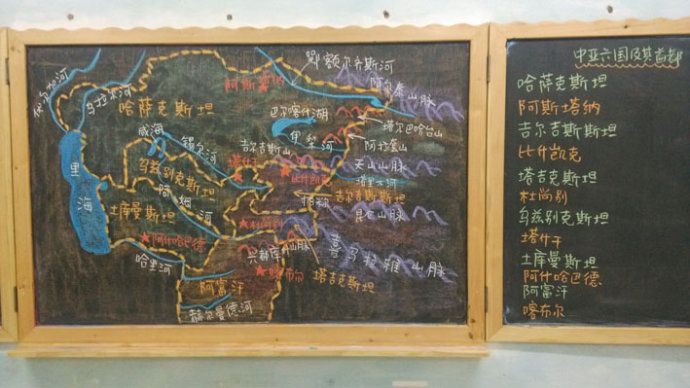 鄂额尔齐斯河
伏尔加河
乌拉尔河
阿斯塔纳
阿尔泰山脉
哈萨克斯坦
巴尔喀什湖
塔尔巴哈台山
伊犁河
咸海
锡尔河
吉尔吉斯山
阿拉套山
塔什干
比什凯克
天山山脉
乌兹别克斯坦
塔里木河
里海
阿姆河
吉尔吉斯斯坦
帕米尔
土库曼斯坦
杜尚别
昆仑山脉
阿什哈巴德
兴都库什山脉
喜马拉雅山脉
哈里河
喀布尔
塔吉克斯坦
阿富汗
赫尔曼德河
中亚六国及其首都
哈萨克斯坦
阿斯塔纳
吉尔吉斯斯坦
比什凯克
塔吉克斯坦
杜尚别
乌兹别克斯坦
塔什干
土库曼斯坦
阿什哈巴德
阿富汗
喀布尔